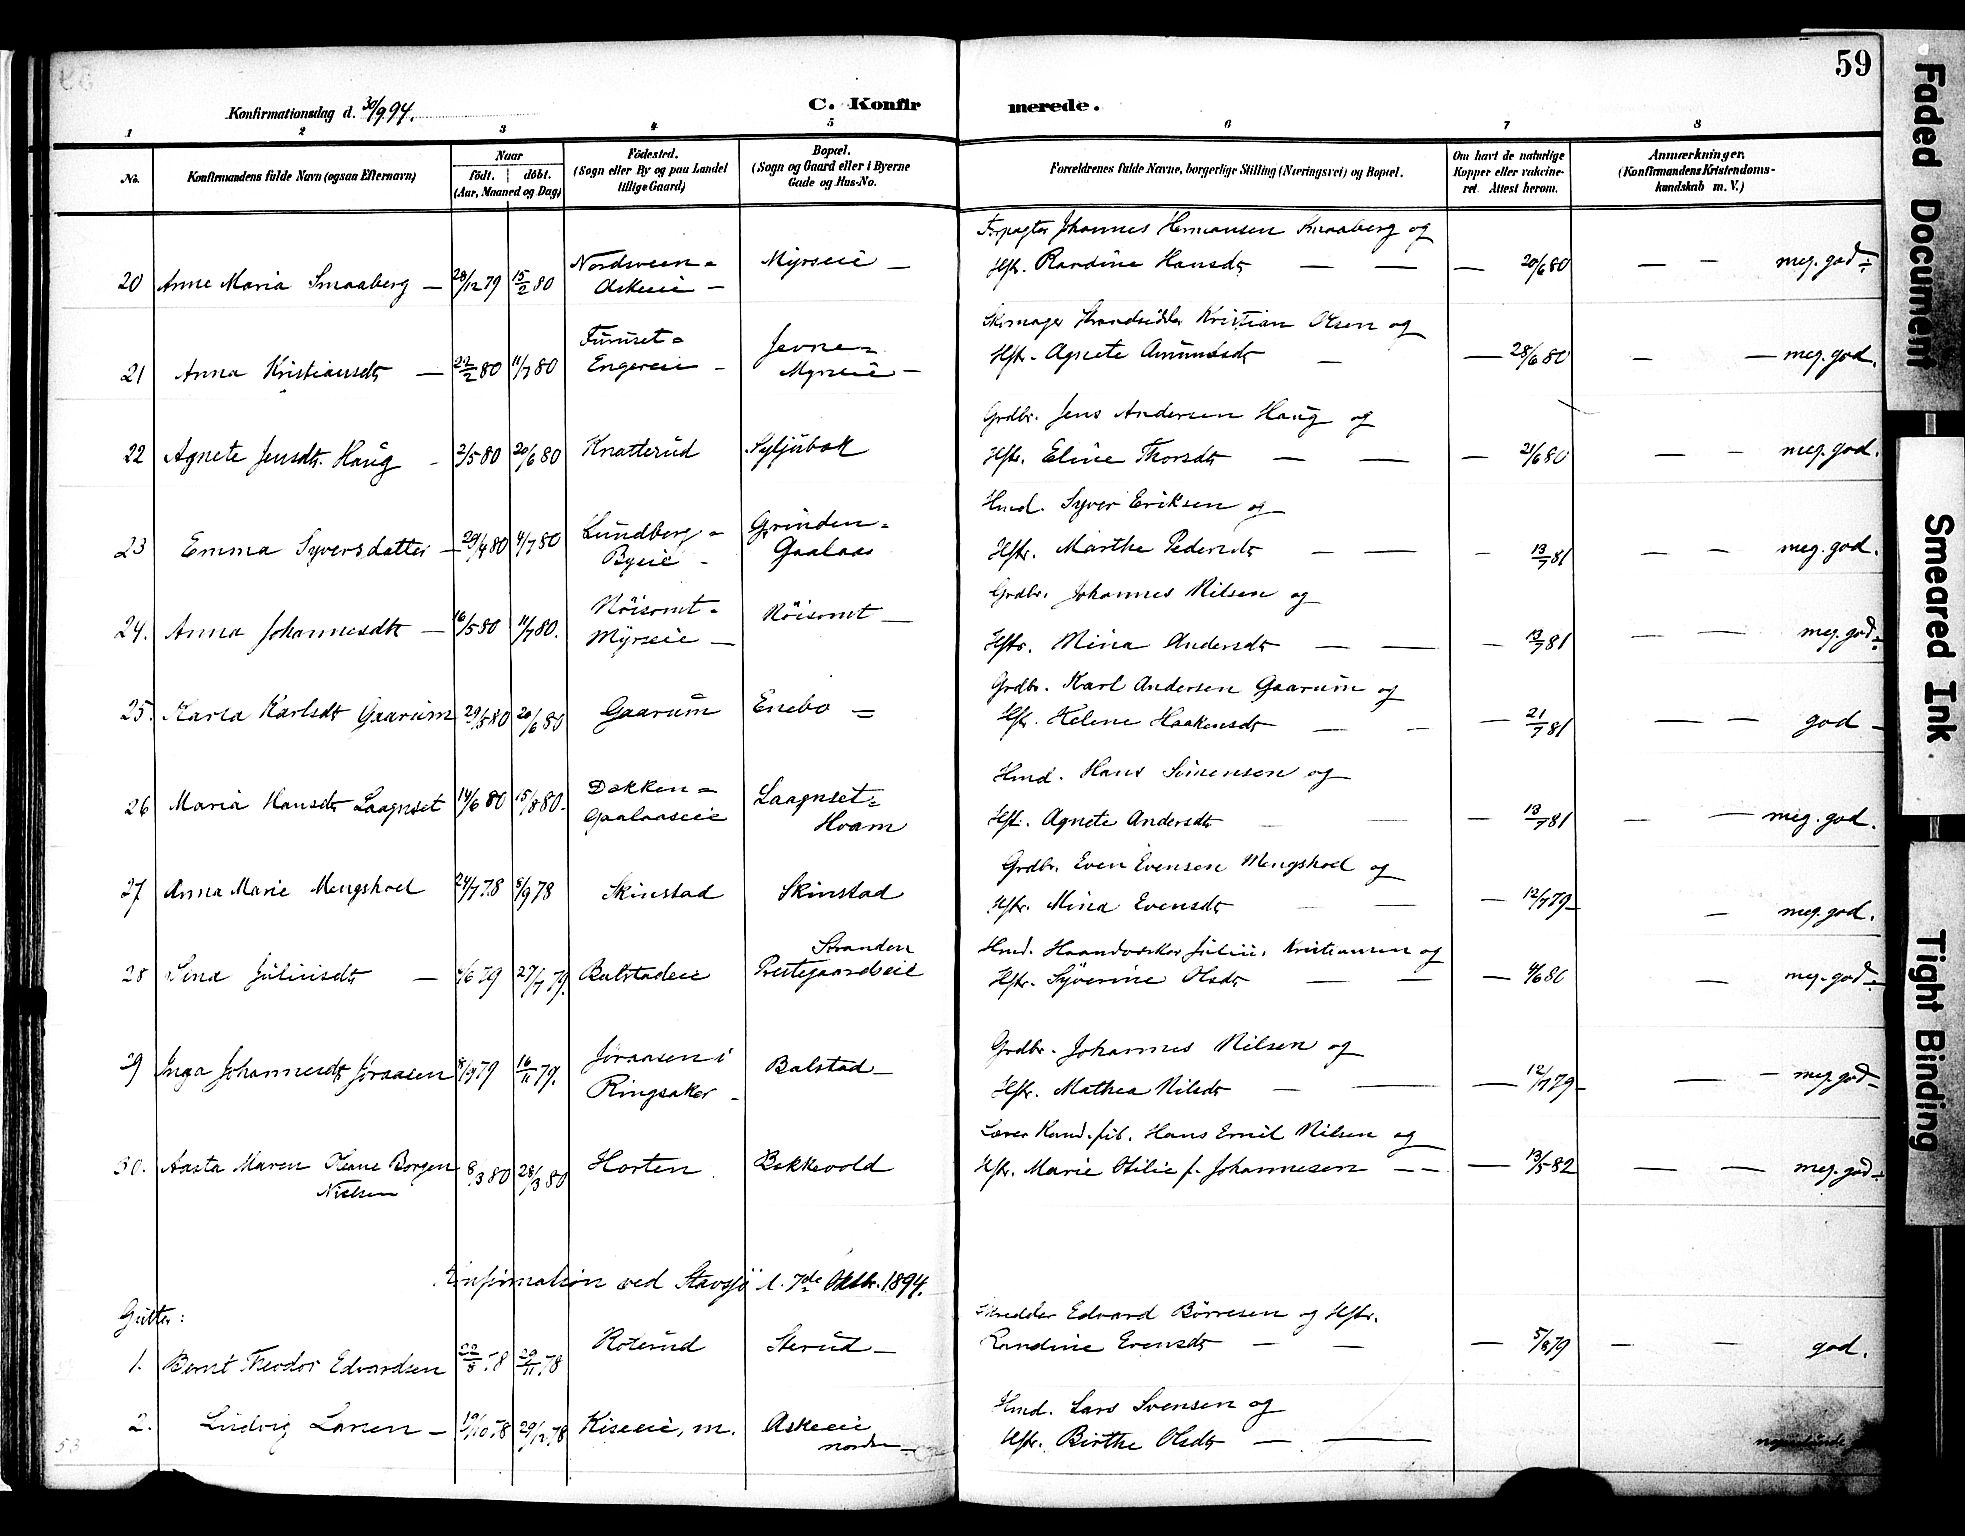 59
Konfirmationsdag d. 30/9 94.
C. Konfirmerede.
1 2 3 4 5 6 7 8
No.
Konfirmandens fulde Navn (ogsaa Efternavn)
Naar
födt. döbt.
(Aar, Maaned og Dag)
Födested.
(Sogn eller By og paa Landet
tillige Gaard)
Bopæl.
(Sogn og Gaard eller i Byerne
Gade og Hus-No.
Forældrenes fulde Navne, borgerlige Stilling (Næringsvei) og Bopæl.
Om havt de naturlige
Kopper eller vakcine-
ret. Attest herom.
Anmærkninger.
(Konfirmandens Kristendoms-
kundskab m. V.)
Forpagter Johannes Hermansen Smaaberg og
20 Anne Maria Smaaberg — 28/12 79 15/2 80 Nordsveen = Askeeie — Myrseie — Hstr. Randine Hansdtr — — — 20/6 80 — — meg. god ÷
Skomager Strandsidder Kristian Olsen og
21 Anna Kristiansdtr — 22/2 80 11/7 80 Furuset = Engereie — Jevne = Myrseie — Hstr. Agnete Amundsdtr — — 28/6 80 — — meg. god.
Grdbr. Jens Andersen Haug og
22 Agnete Jensdtr. Haug - 2/5 80 20/6 80 Knatterud Syljubak Hstr. Eline Thorsdtr — — — 21/6 80 — — meg. god.
Hmd. Syver Eriksen og
23 Emma Syversdatter — 29/4 80 4/7 80 Lundberg = Byeie - Grinden = Gaalaas Hstr. Marthe Pedersdtr — — - 13/7 81 — — meg. god.
Grdbr. Johannes Nilsen og
24. Anna Johannesdtr — 16/5 80 11/7 80. Nöisomt = Myrseie — Nöisomt — Hstr. Mina Andersdtr — — — 13/7 81 — — meg. god ÷
Grdbr. Karl Andersen Gaarum og
25. Karla Karlsdtr Gaarum 29/5 80 20/6 80 Gaarum Enebo = Hstr. Helene Haakensdtr — - — 21/7 81 — — god —
Hmd. Hans Simensen og
26 Maria Hansdtr Laagnset 14/6 80 15/8 80. Dakken = Gaalaaseie Laagnset = Hvam Hstr. Agnete Andersdtr — — — 13/7 81 — — meg. god.
Grdbr. Even Evensen Mengshoel og
27 Anna Marie Mengshoel 24/7 78 8/9 78 Skinstad Skinstad Hstr. Mina Evensdtr — — — 12/7 79 — — meg. god.
Hmd. Haandværker Julius Kristiansen og
28 Lina Juliusdtr — /6 79 27/7 79. Balstadeie Stranden Prestegaardseie Hstr. Syverine Olsdtr — — — 4/6 80 — meg. god ÷
Grdbr. Johannes Nilsen og
29 Inga Johannesdtr Jøraasen 8/9 79 16/11 79. Jøraasen i Ringsaker - Balstad — Hstr. Mathea Nilsdtr — — — 12/7 79 — — — meg. god —
Lærer Kand. fil. Hans Emil Nilsen og
30. Aasta Maren Oleane Borgen Nielsen 8/3 80 28/3 80 Horten Bekkevold Hstr. Marie Otilie f. Johannesen — — — 13/5 82 — — meg. god ÷
Konfirmation ved Stavsjö d. 7de Oktbr. 1894.
Gutter:
Skredder Edvard Börresen og Hstr.
1. Bernt Theodor Edvardsen 22/8 78 29/11 78 Roterud Sterud — Randine Evensdtr — — — 5/8 79 — — god.
Hmd. Lars Svensen og
2. Ludvig Larsen — 19/10 78 29/12 78 Kiseeie, m. Askeeie norder — Hstr. Birthe Olsdtr — —
Faded Document
Smeared Ink
Tight Binding